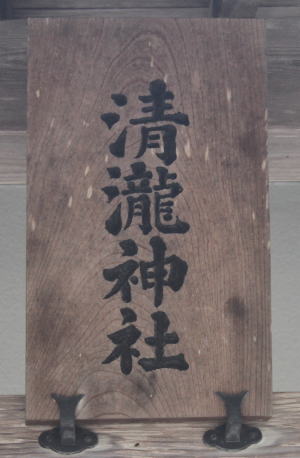 清瀧神社